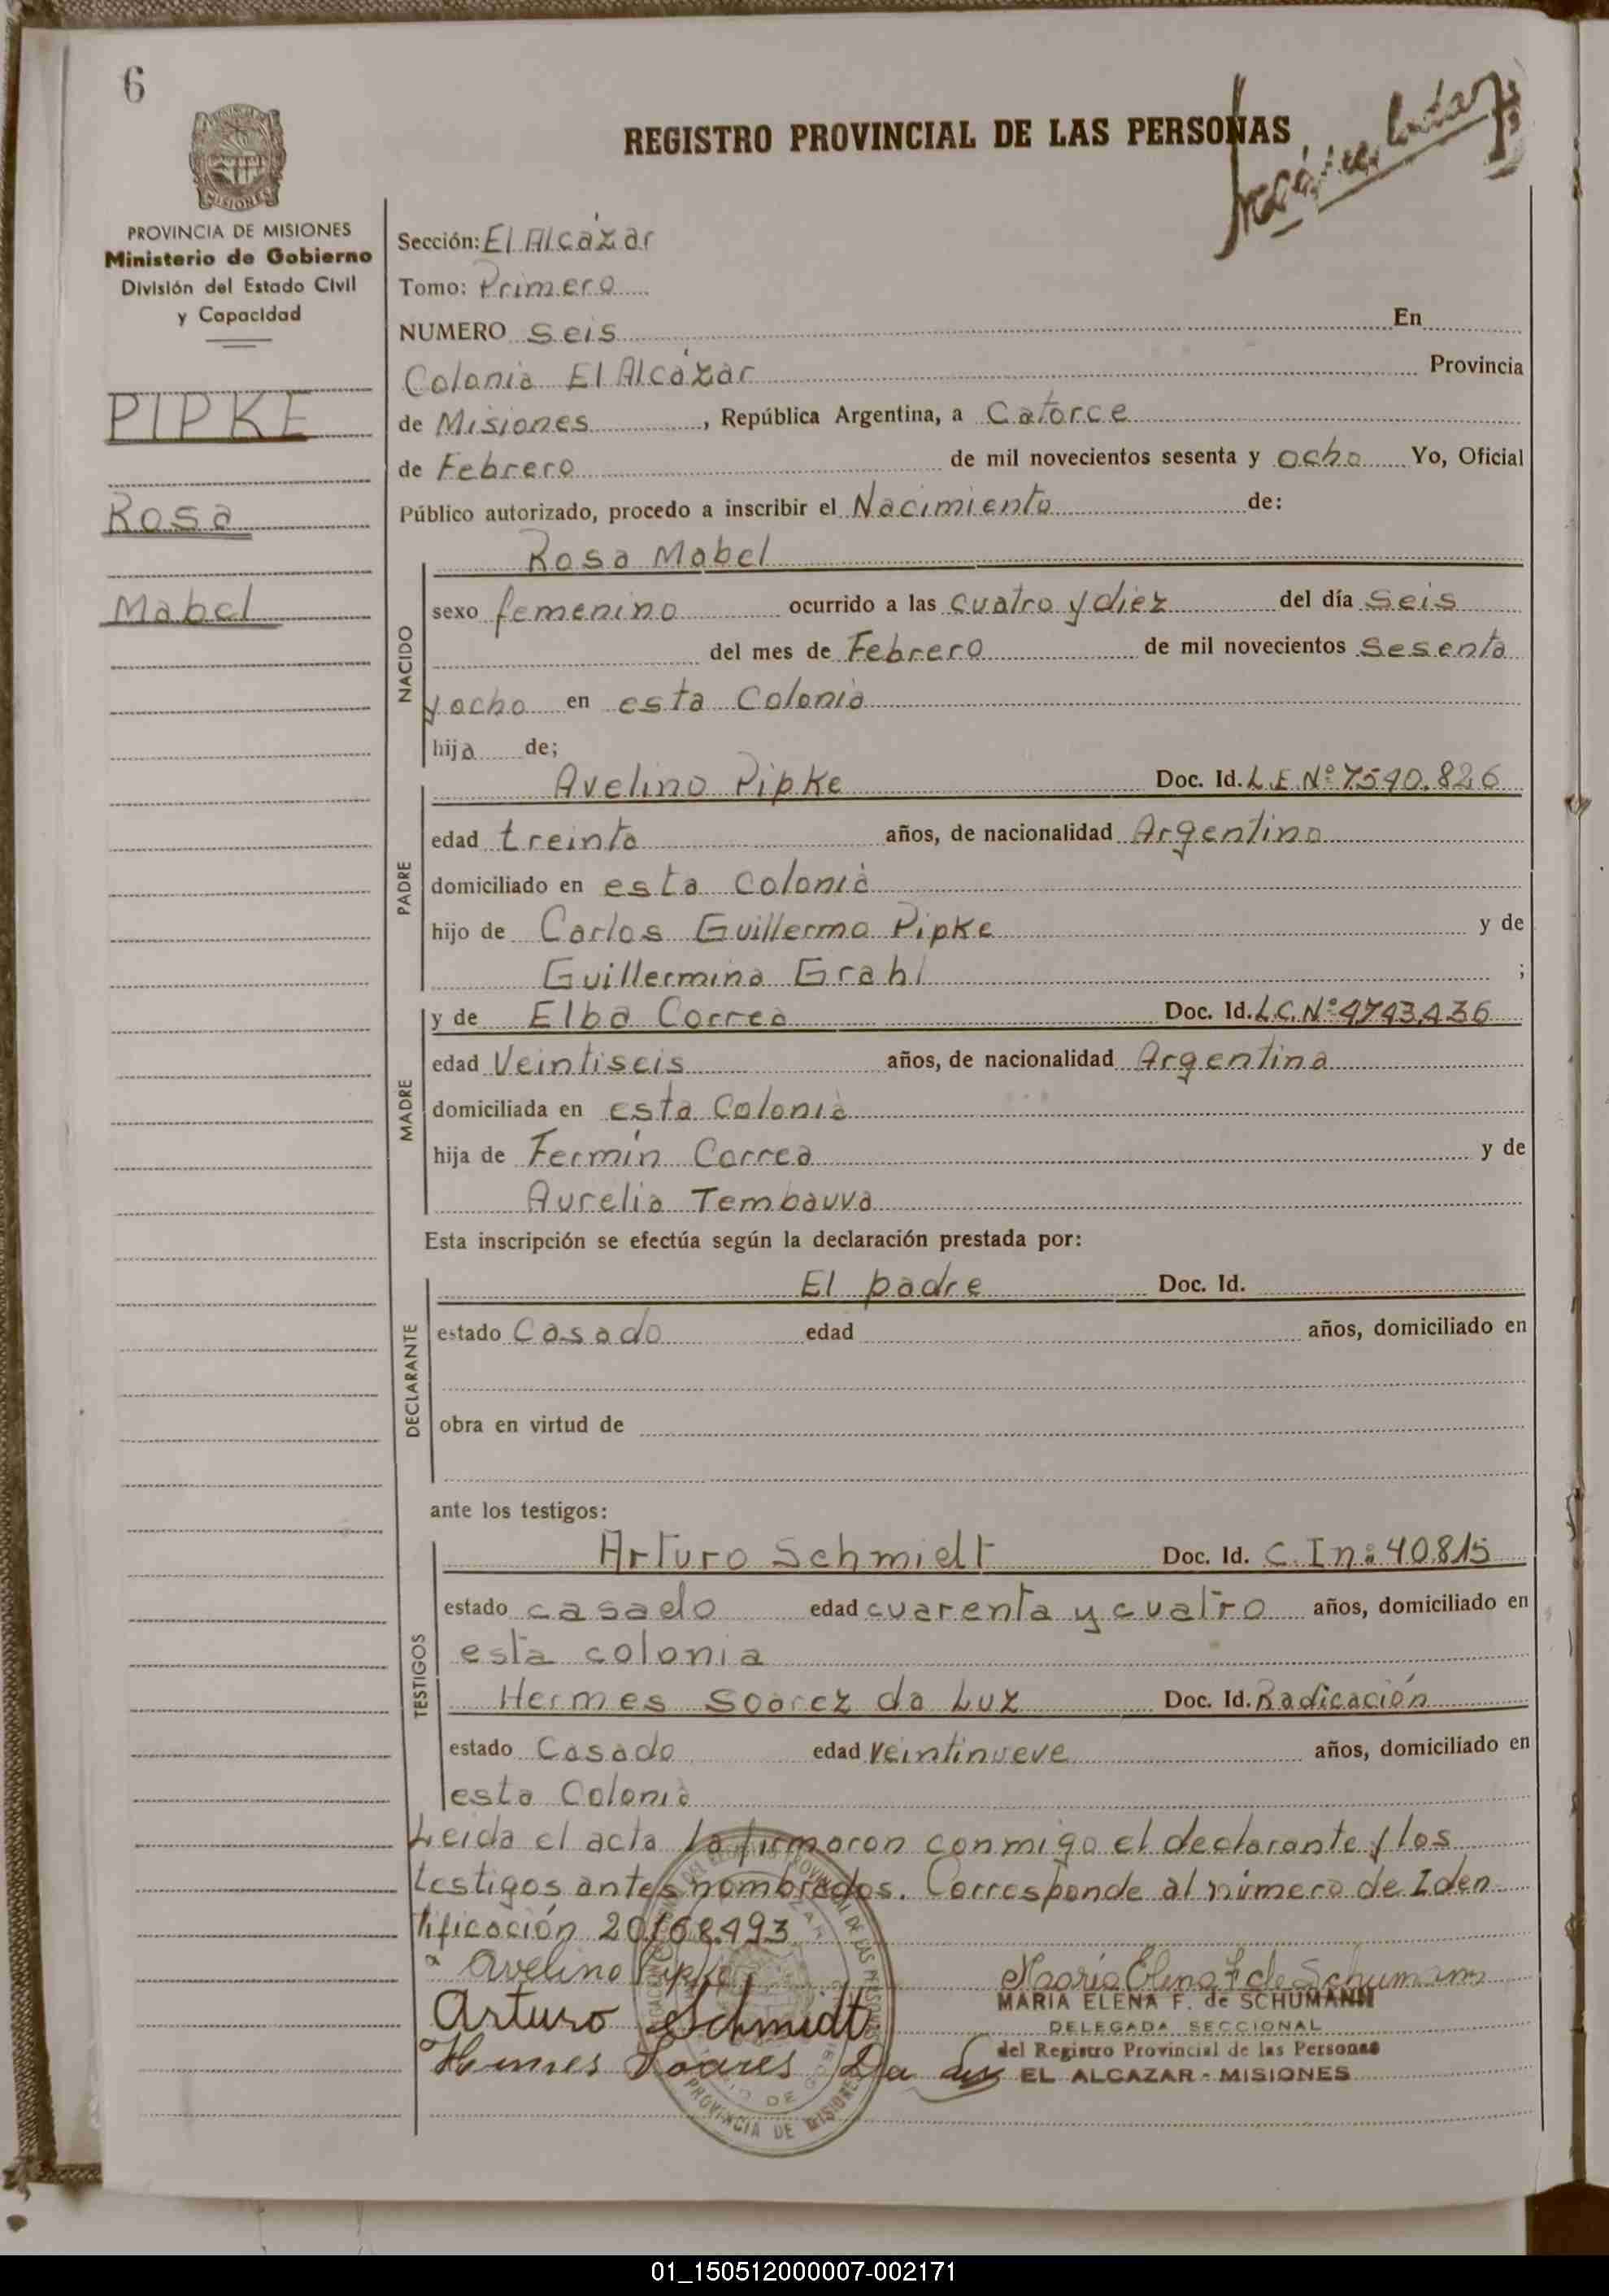 6
REGISTRO PROVINCIAL DE LAS PERSONAS
MISIONES
PROVINCIA DE MISIONES
Ministerio de Gobierno
División del Estado Civil
y Capacidad
PIPKE
Rosa
Mabel
Sección: El Alcázar
Tomo: Primero
NUMERO Seis En
Colonia El Alcázar Provincia
de Misiones, República Argentina, a Catorce
de Febrero de mil novecientos sesenta y ocho Yo, Oficial
Público autorizado, procedo a inscribir el Nacimiento de:
NACIDO
Rosa Mabel
sexo femenino ocurrido a las cuatro y diez del día Seis
del mes de Febrero de mil novecientos Sesenta
y ocho en esta Colonia
hija de;
PADRE
Avelino Pipke Doc. Id. L.E. Nº 7540.826
edad treinta años, de nacionalidad Argentina
domiciliado en esta Colonia
hijo de Carlos Guillermo Pipke y de
Guillermina Grahl ;
MADRE
y de Elba Correa Doc. Id. L.C. Nº 4743.436
edad Veintiseis años, de nacionalidad Argentina
domiciliada en esta Colonia
hija de Fermín Correa y de
Aurelia Tembauva
Esta inscripción se efectúa según la declaración prestada por:
DECLARANTE
El padre Doc. Id.
estado Casado edad años, domiciliado en
obra en virtud de
ante los testigos:
TESTIGOS
Arturo Schmidt Doc. Id. C. I nº 40.815
estado casado edad cuarenta y cuatro años, domiciliado en
esta colonia
Hermes Soarez da Luz Doc. Id. Radicación
estado Casado edad Veintinueve años, domiciliado en
esta Colonia
Leida el acta la firmaron conmigo el declarante y los
testigos antes nombrados. Corresponde al número de Iden
tificación 20.168.493
Avelino Pipke
Arturo Schmidt
Hermes Soares Da Luz
Maria Elena F de Schumann
MARIA ELENA F. de SCHUMANN
DELEGADA SECCIONAL
del Registro Provincial de las Personas
EL ALCAZAR - MISIONES
PROVINCIA DE MISIONES
01_150512000007-002171